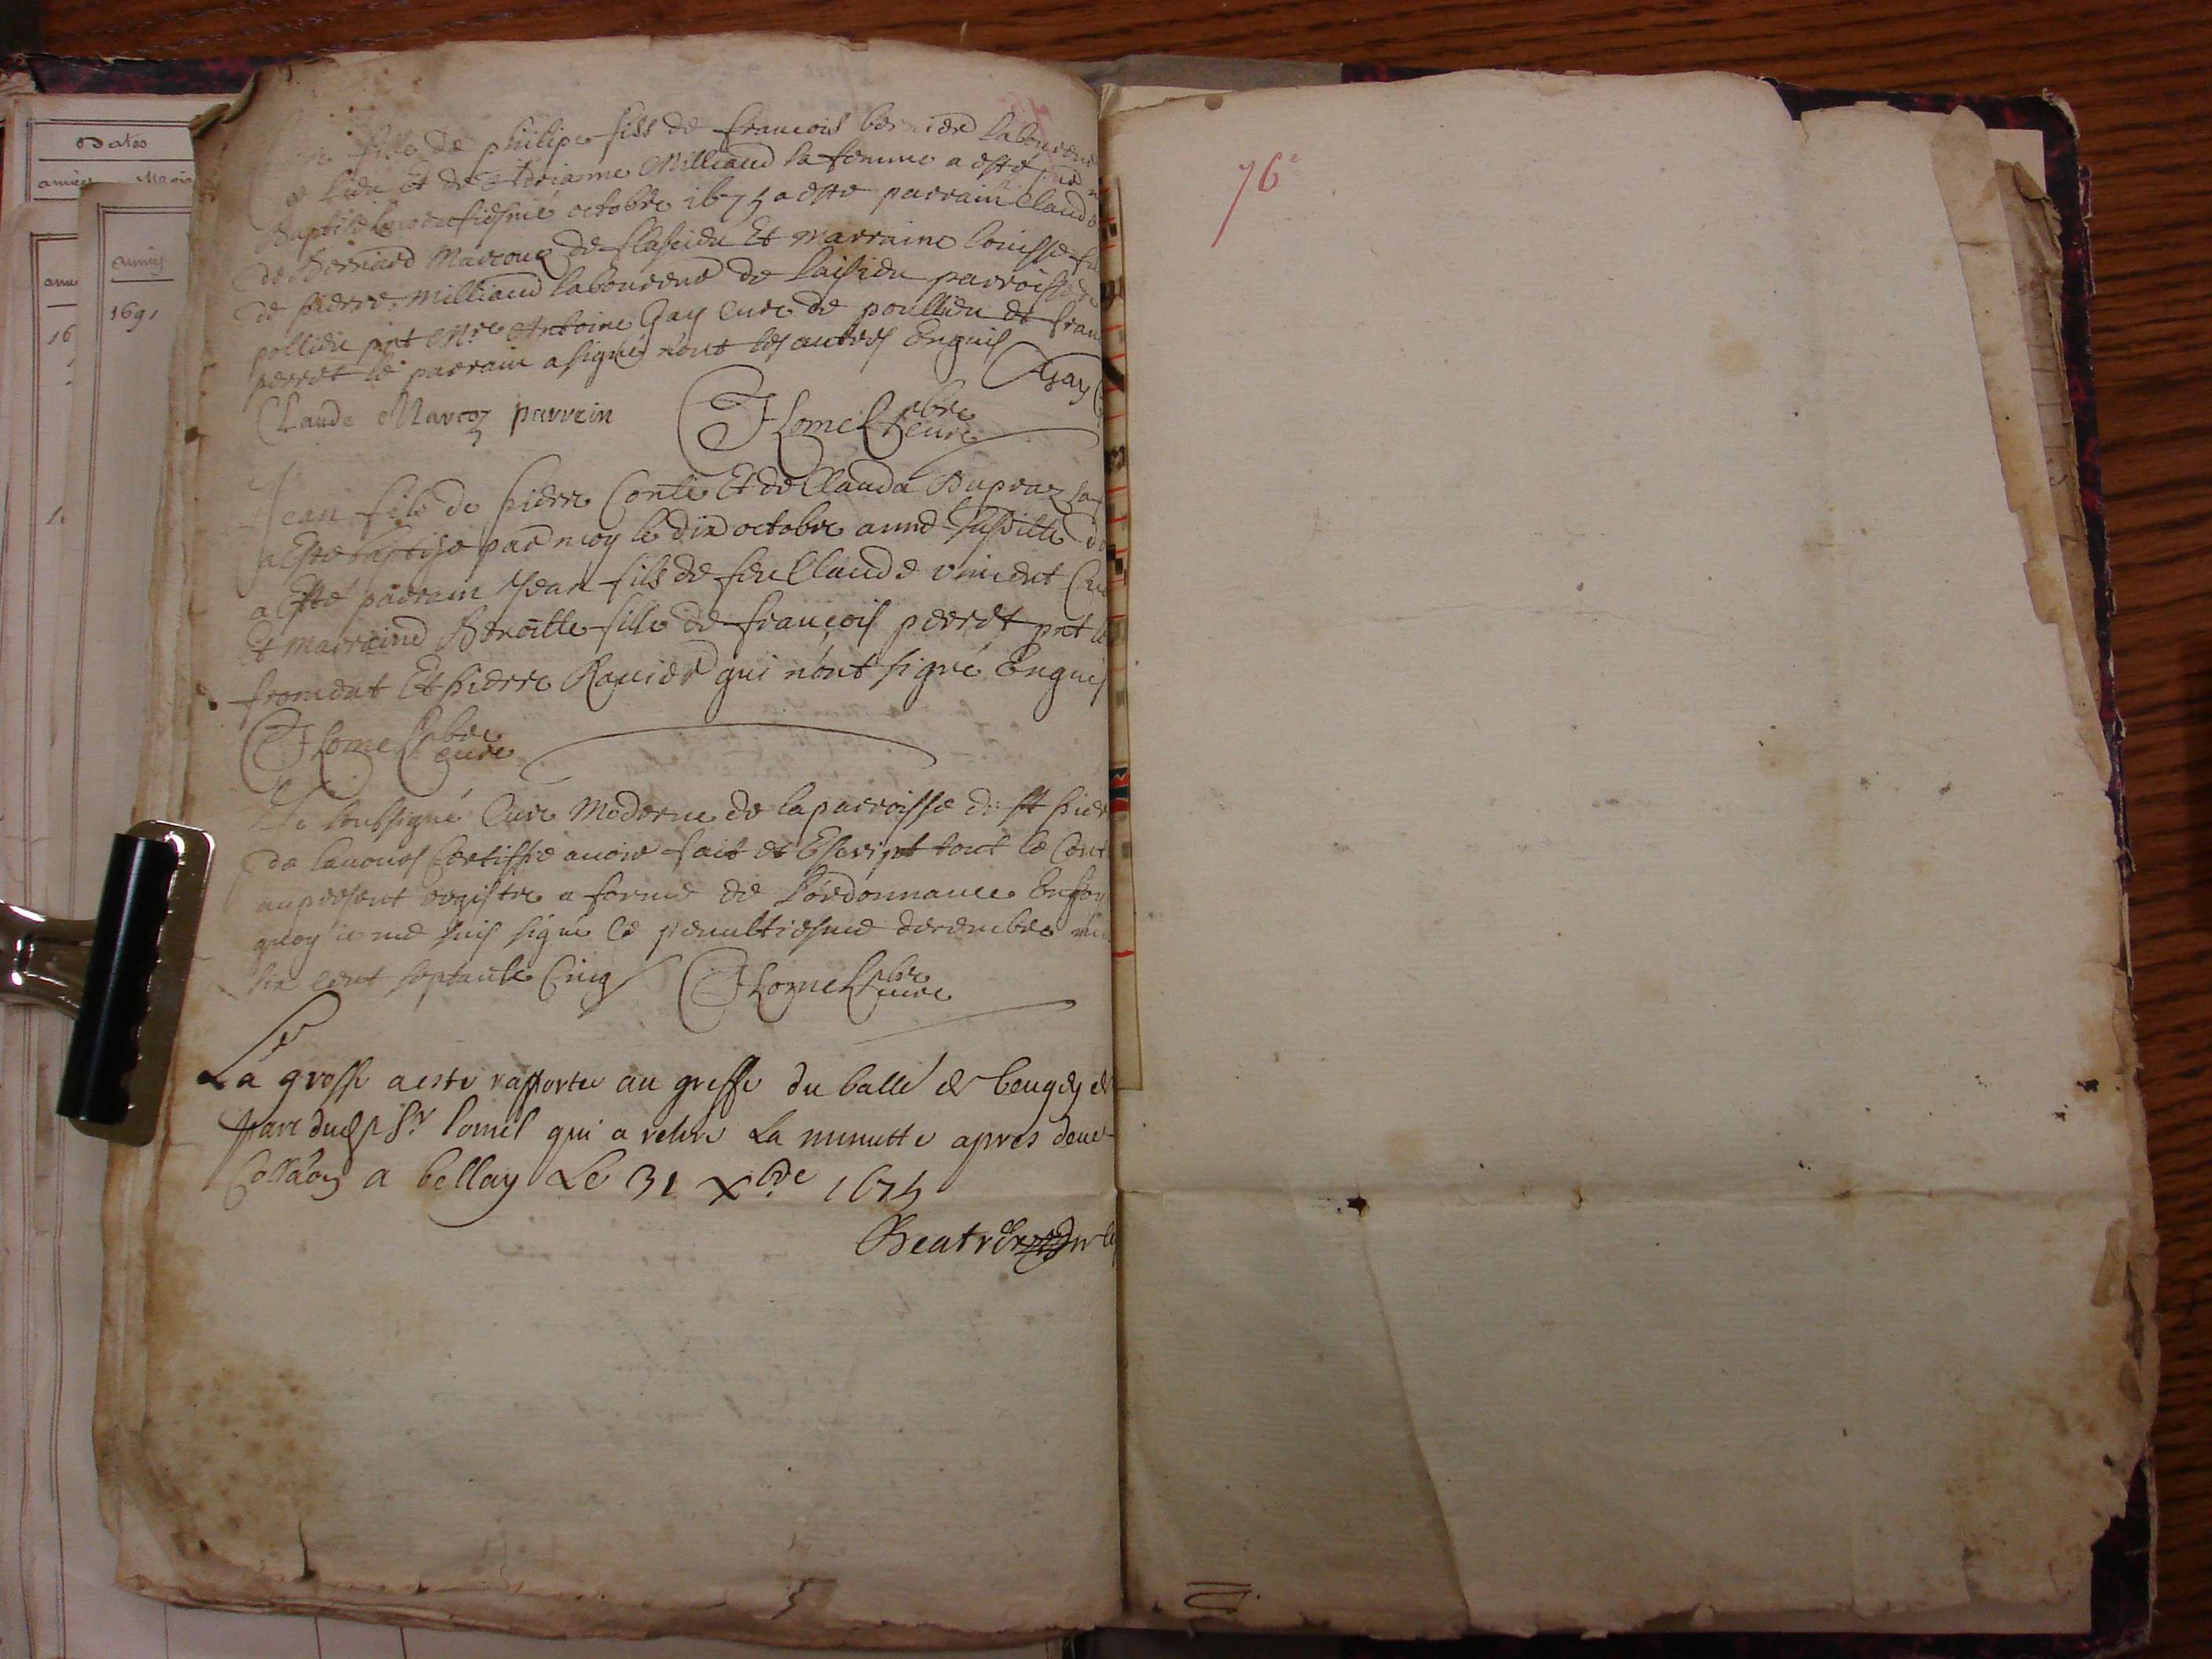 Dates
années Mois
années
1691
16
fille de philipe fils de francois bernier laboureur
et de Adrianne Milliand sa femme a esté
Baptisé le octobre 1675 a esté parrain Claude
de Bernard Marcoz de flaxieu Et marraine louisse
de pierre Milliand laboureur de parroisse
pollieu pnt Mre Antoine Gay Cure de poullieu et fran
perret le parrain a signé nont les autres Enquis
Gay
Claude Marcoz parrein JLomel pbre cure
Jean fils de pierre Conte Et de Clauda Dupraz sa
a Esté baptisé par moy le dix octobre anné susditte
a Esté parrain Jean fils de feu Claude vincent
Et marraine Benoitte fille de françois perret pnt
froment Et pierre Ravier qui nont signé Enquis
JLomel pbre cure
Je soubsigné Cure Moderne de la parroisse de st pier
de lavours Certiffie avoir fait et Escript tout le Cont
au present registre a forme de l'ordonnance En foy
quoy ie me suis signé le penultiesme decembre mil
six cent septante Cinq JLomel pbre cure
La grosse a esté rapportee au greffe du balle de beugey et
part dud Sr lomel qui a retiré La minutte apres deue
Colla͠on a bellay Le 31 Xbre 1675
76e